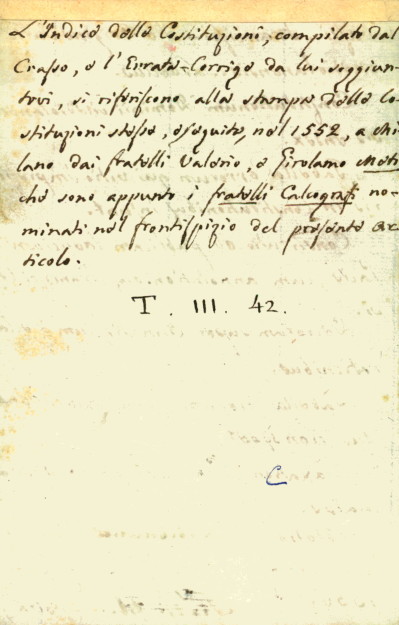 L'Indice delle Costituzioni, compilato dal
Crasso, e l'Errata-Corrige da lui soggiun-
tovi, si riferiscono alla stampa delle Co-
stituzioni stesse, eseguita, nel 1552, a Mi
lano dai fratelli Valerio, e Girolamo Meti,
che sono appunto i fratelli Calcografi no-
minati nel frontispizio del presente ar-
ticolo.
T. III. 42.
C